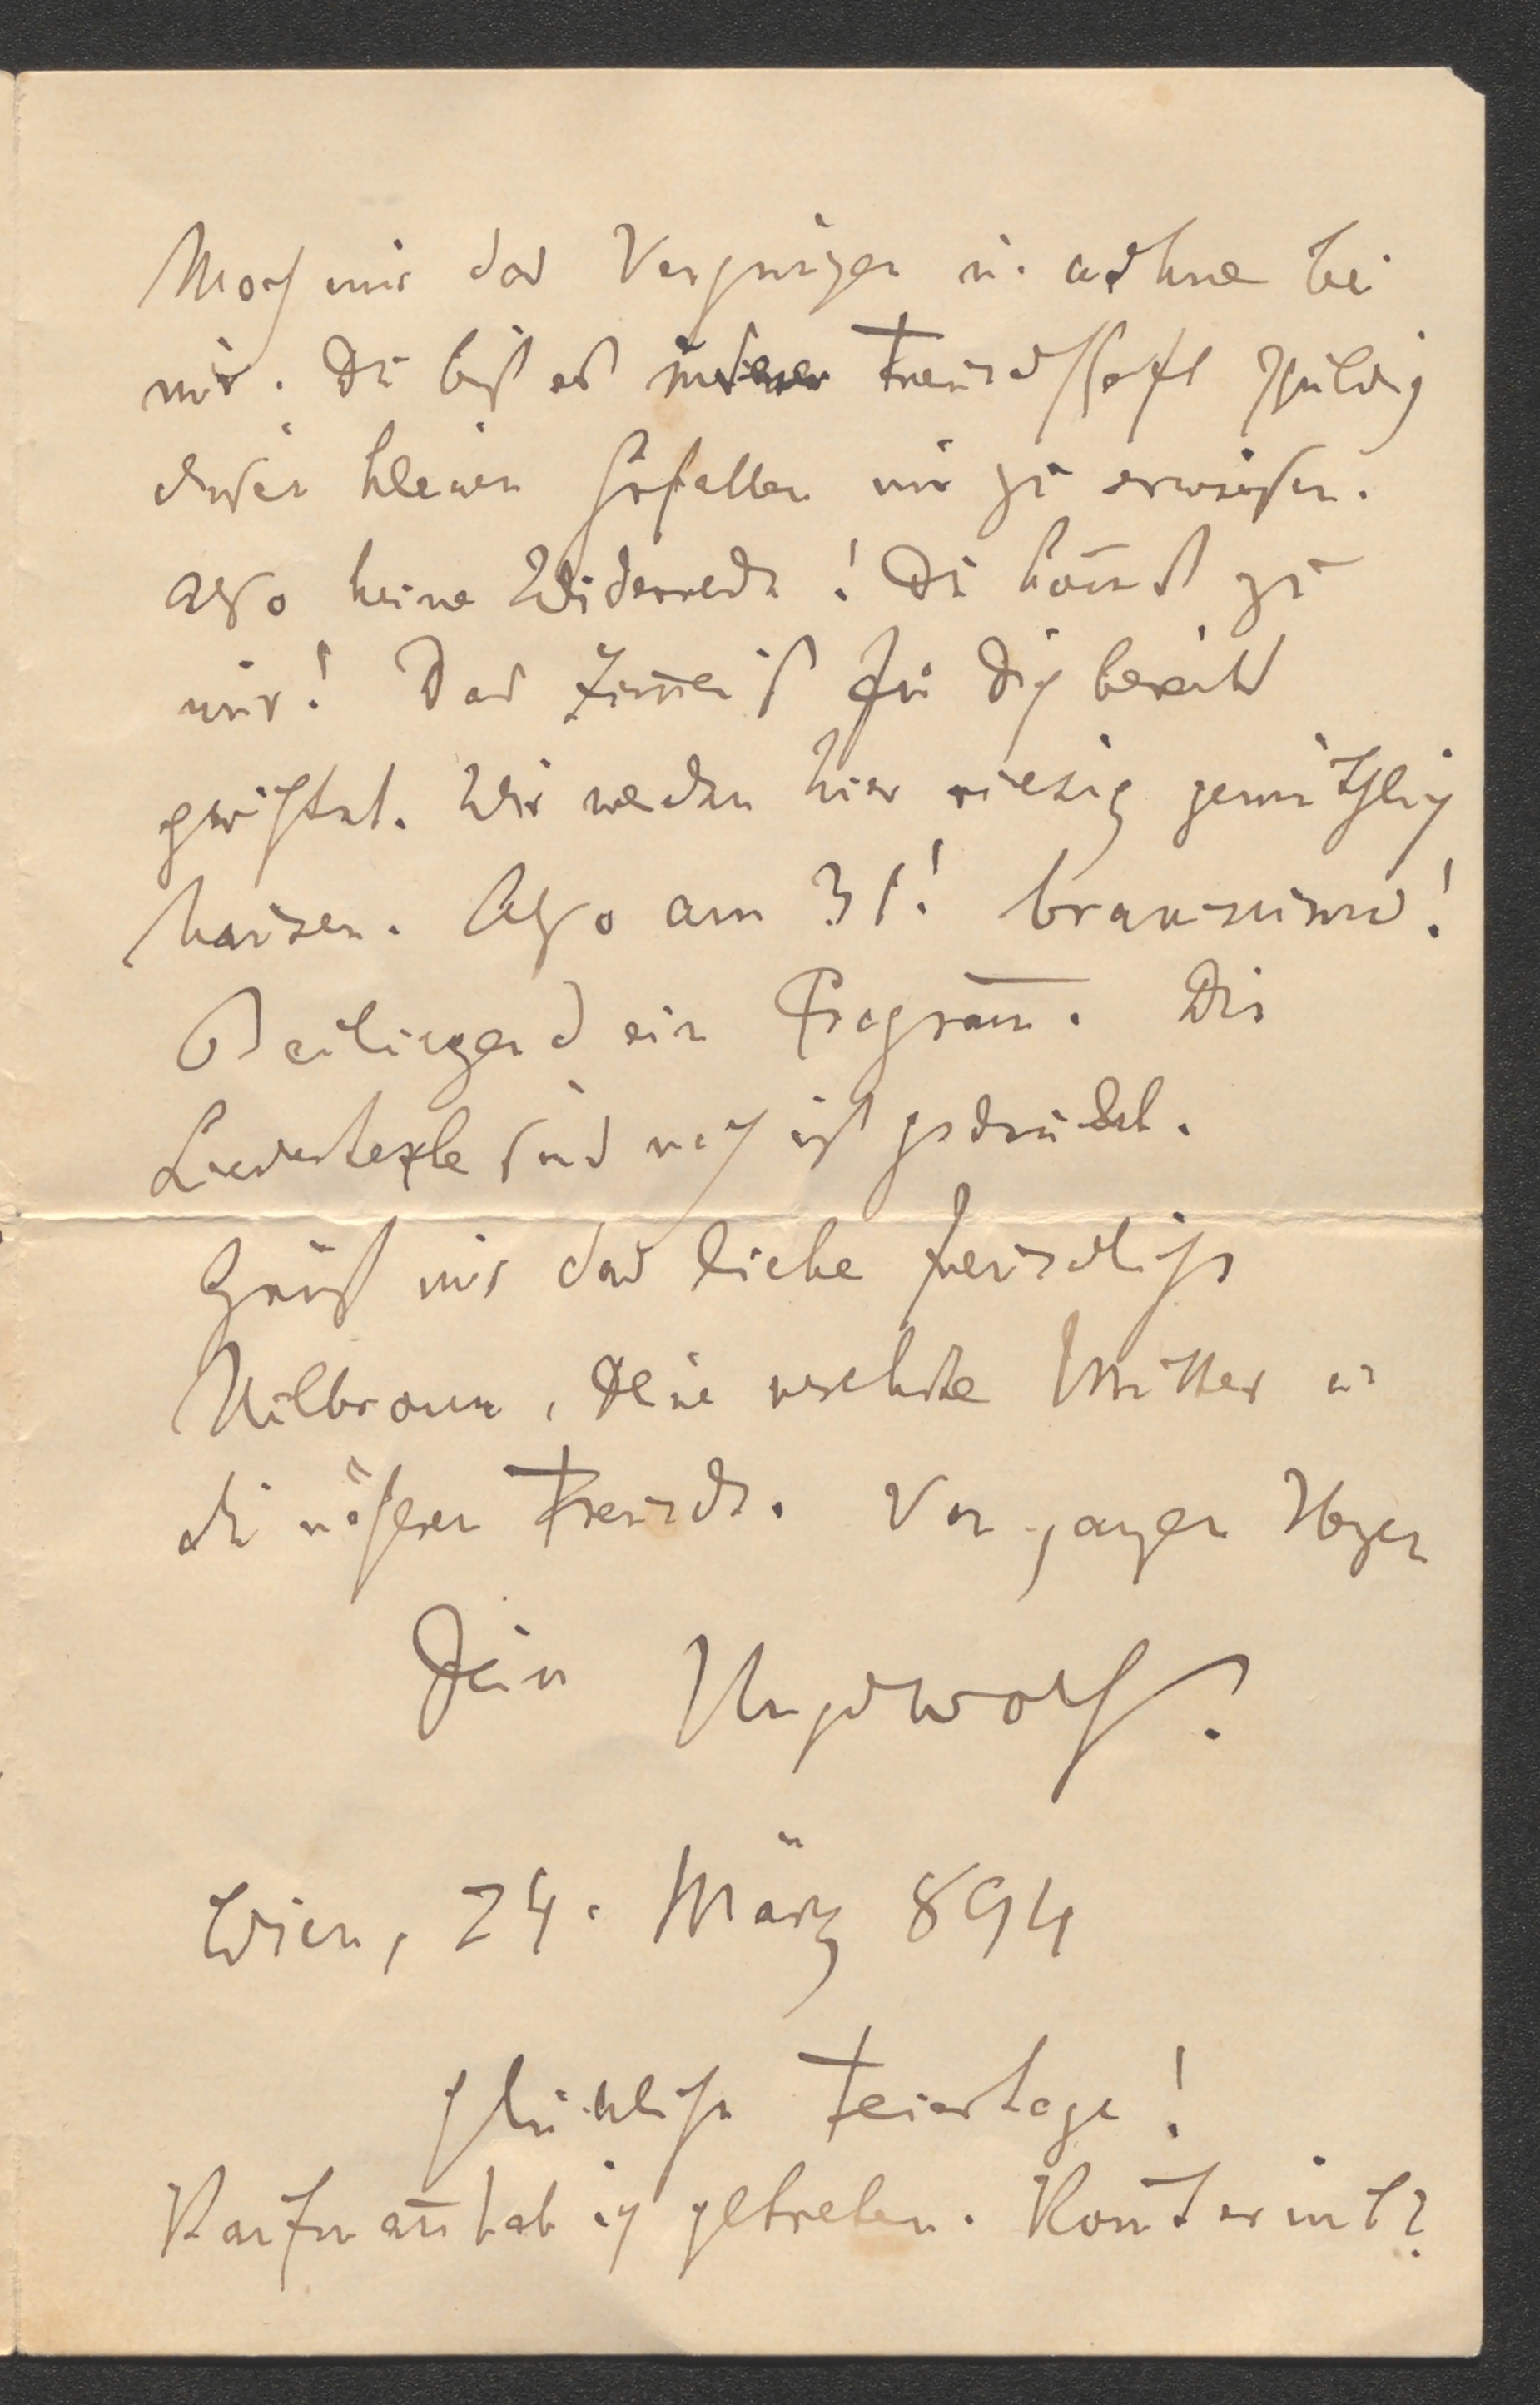 Mach mir das Vergnügen u. wohne bei
mir. Du bist es meiner Freundschaft schuldig
diesen kleinen Gefallen mir zu erweisen.
Also keine Widerrede! Du kom̄st zu
mir! Das Zim̄er ist für Dich bereits
gerichtet. Wir werden hier riesig gemüthlich
hausen. Also am 31!
Beiliegend ein Program̄. Die
Liedertexte sind noch nicht gedruckt.
Grüß mir das liebe freundliche
Heilbronn, Deine verehrte Mutter u
die näheren Freunde. Von ganzem Herzen
Dein Hugo Wolf.
Wien, 24. März 894
Glückliche Feiertage!
Kaufman̄ hab ich gebeten. Kom̄t er mit?